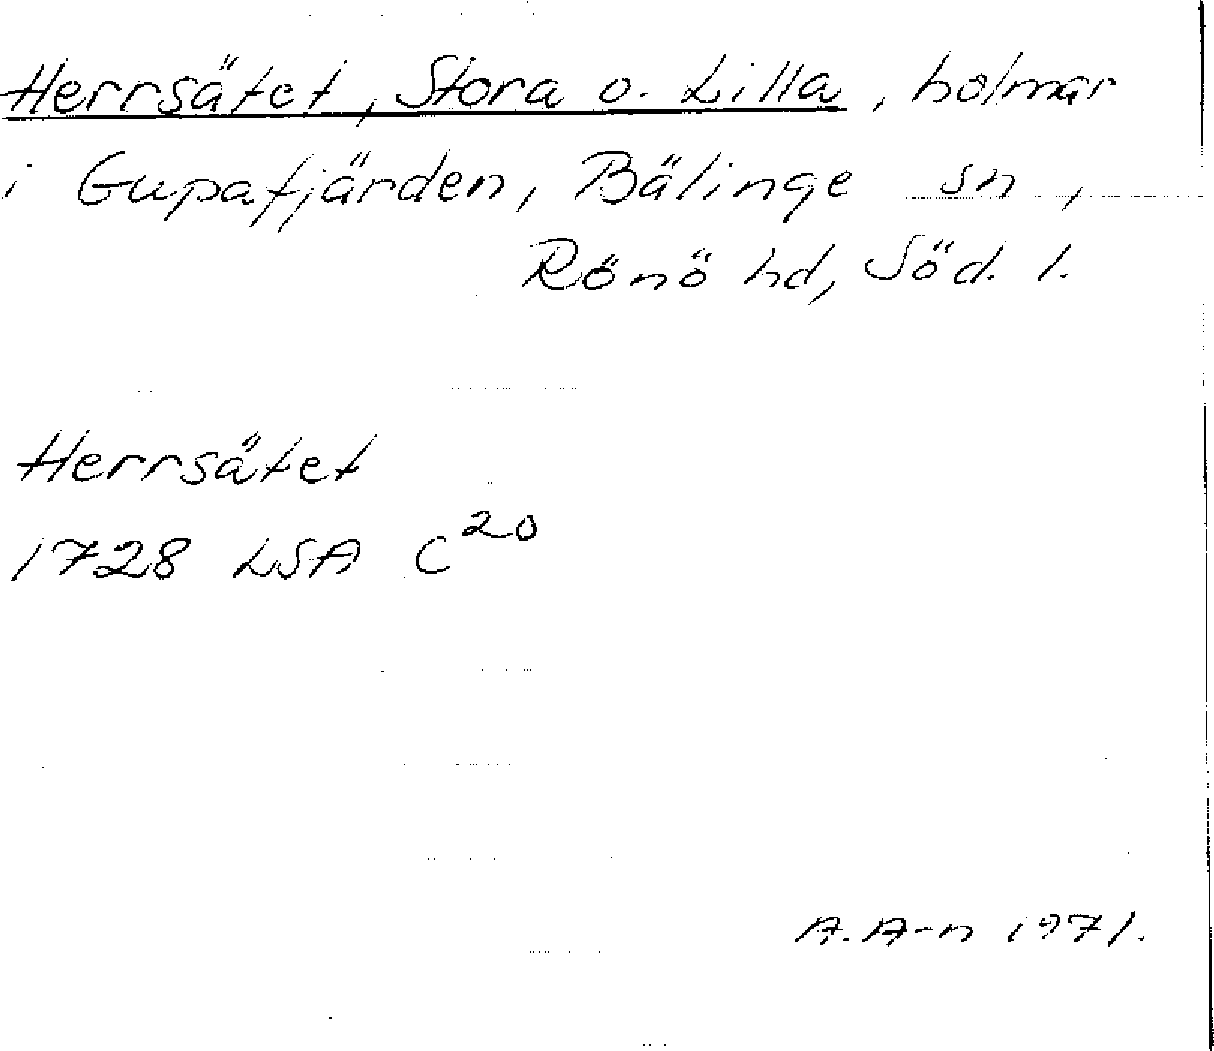 Herrsätet, Stora o. Lilla, holmar
i Gupafjärden, Bälinge sn,
Rönö hd, Söd. l.
Herrsätet
1728 LSA C²⁰
A. A-n 1971.